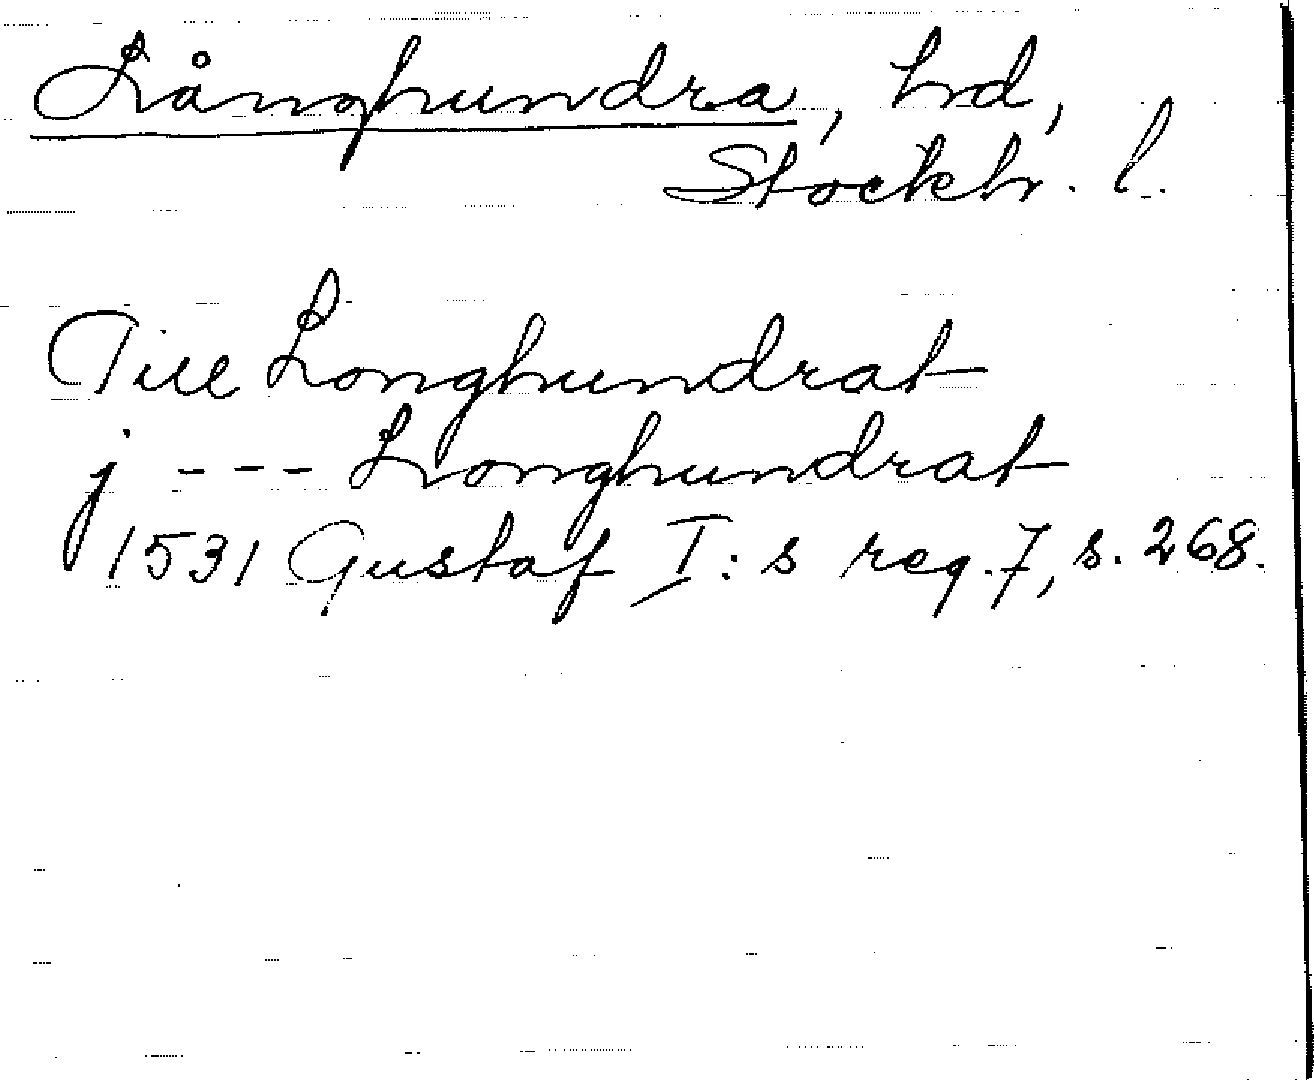 Långhundra, hd,
Stockh. l.
Till Longhundrat
j --- Longhundrat
1531 Gustaf I:s reg. 7, s. 268.